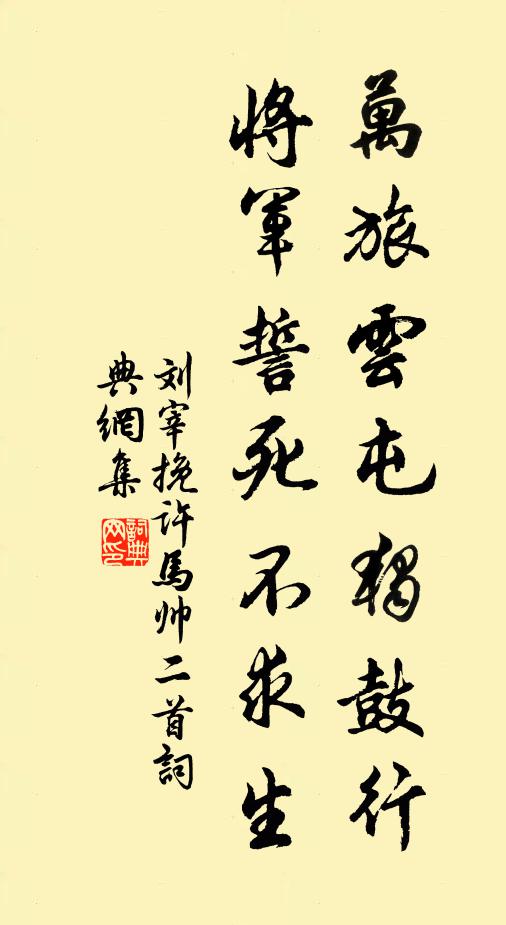 萬旅雲屯獨鼓行
將軍誓死不求生
刘宰挽许馬帅二首詞
典網集
詞典網印